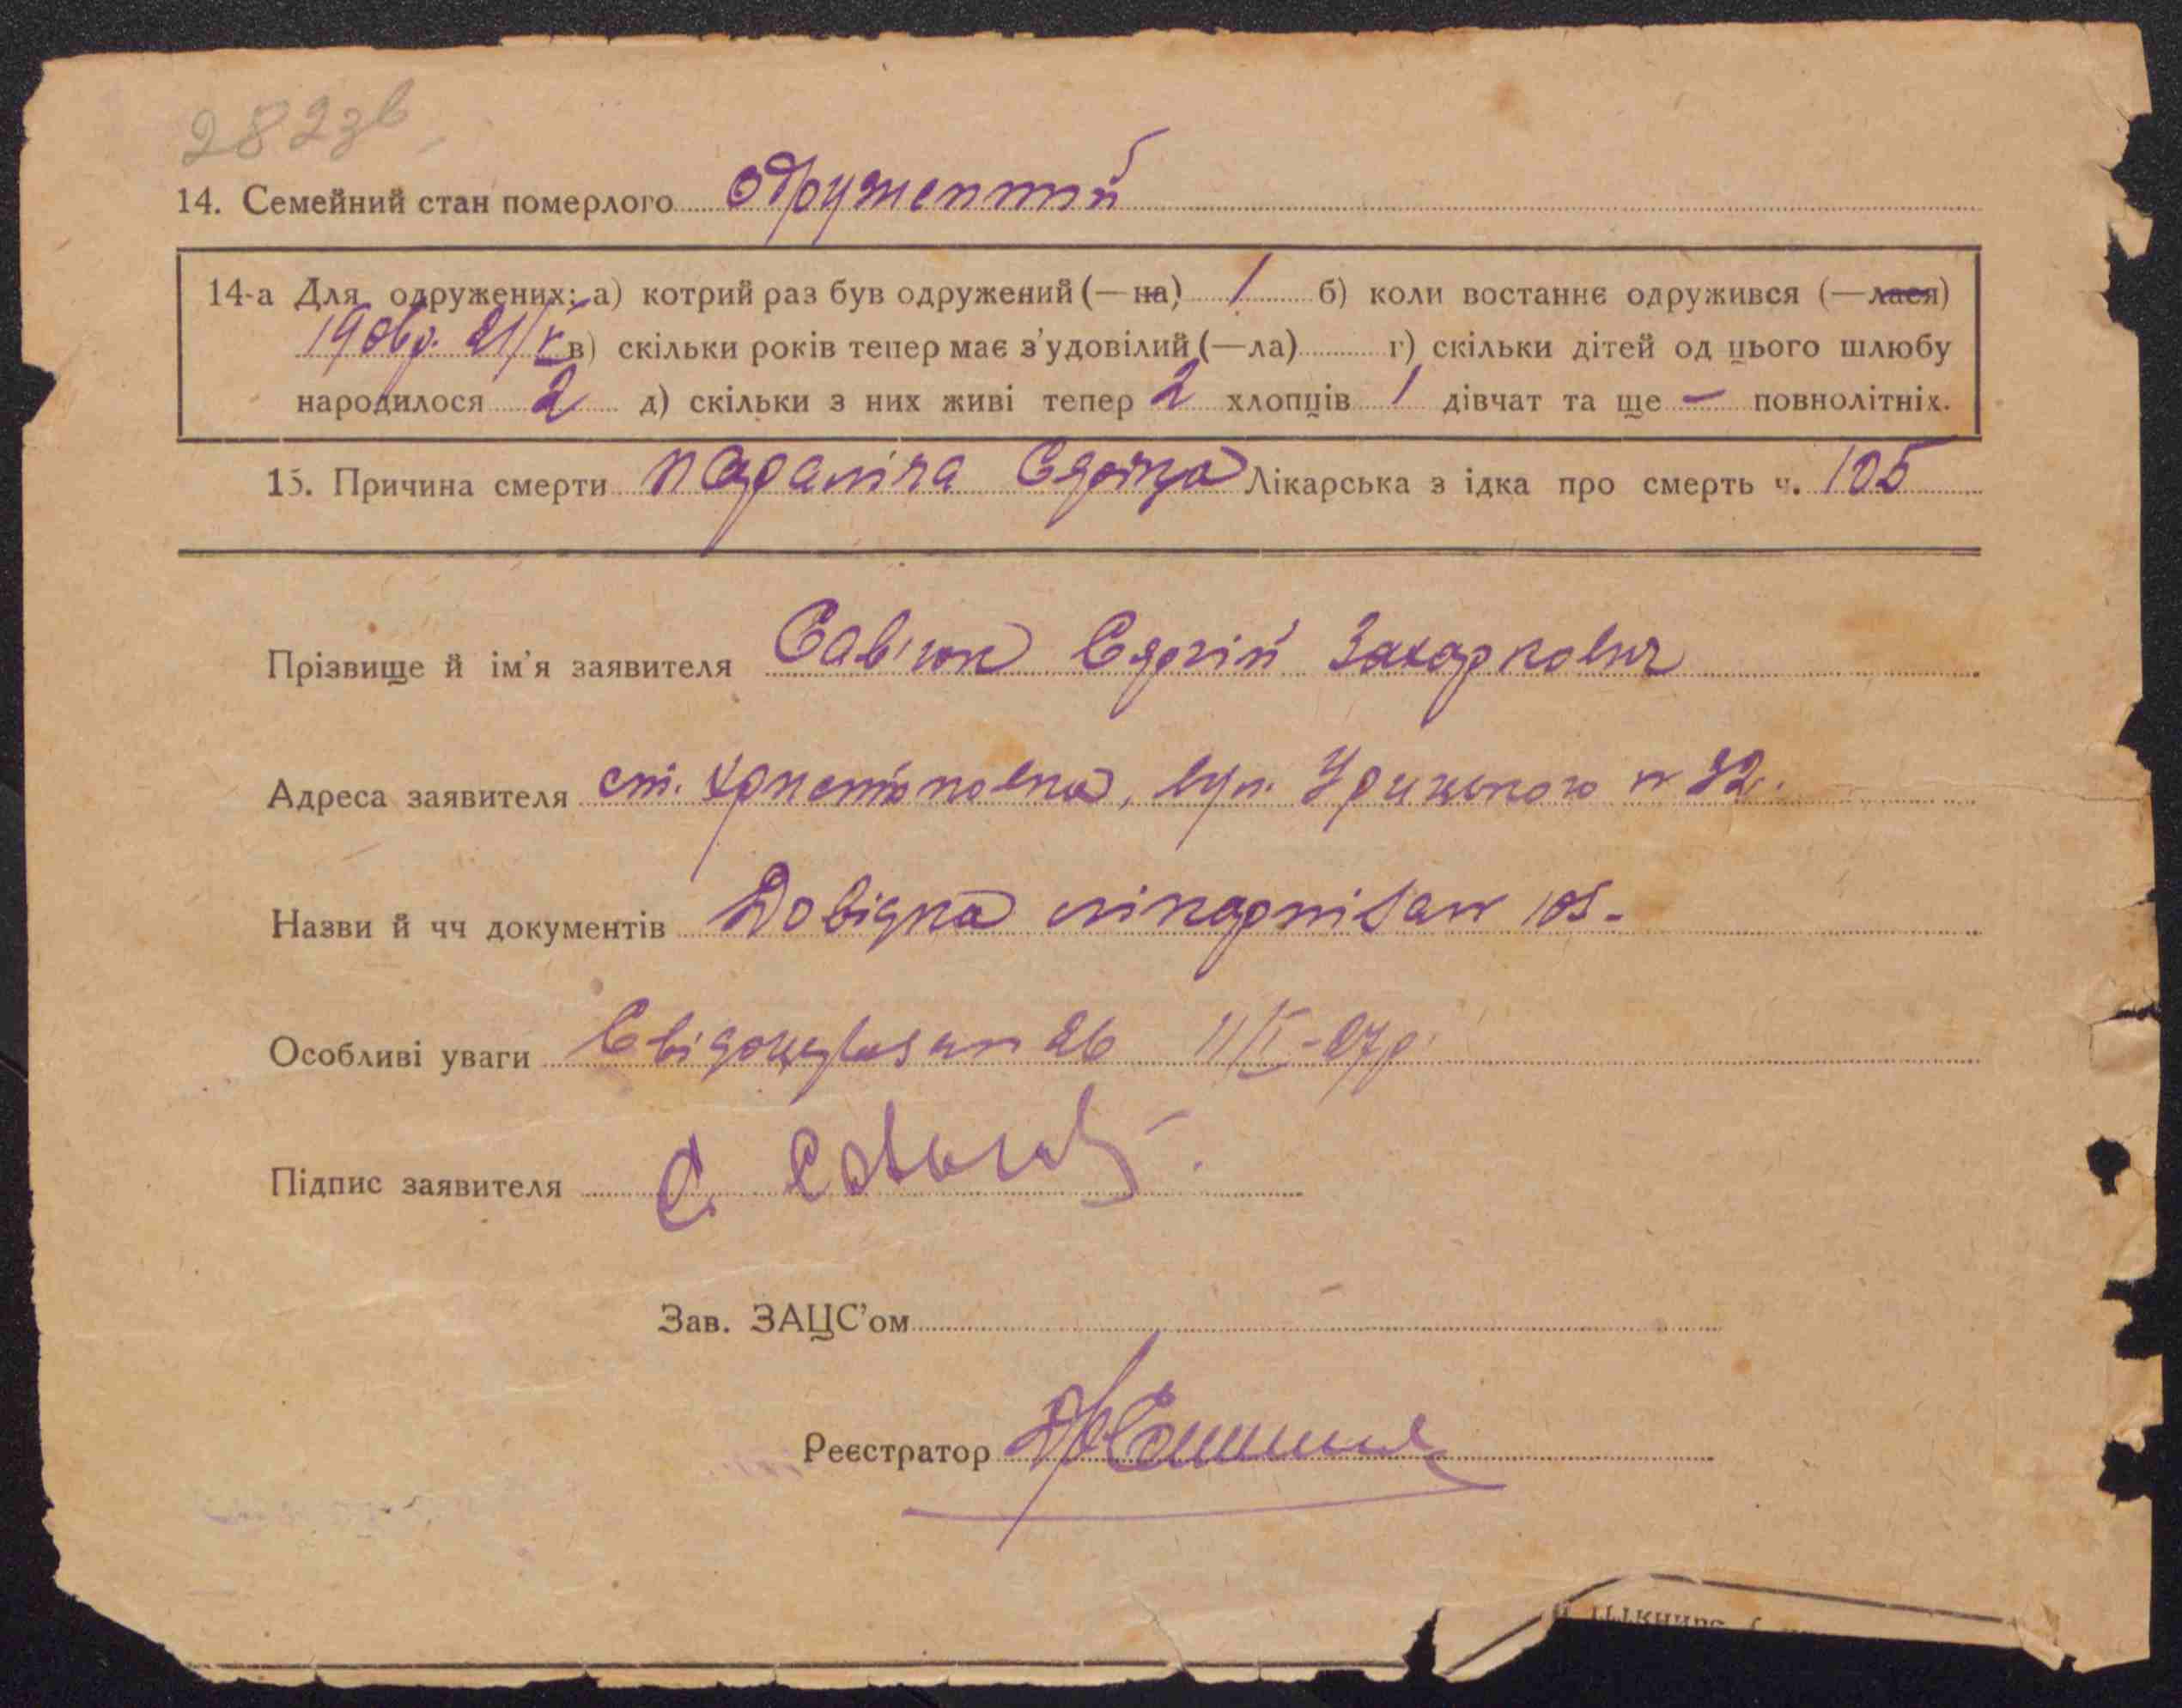 282зв
14. Семейний стан померлого одружений
14-а Для одружених: а) котрий раз був одружений (—на) 1 б) коли востаннє одружився (—лася)
1906р. 21/V в) скільки років тепер має з'удовілий (—ла) г) скільки дітей од цього шлюбу
народилося 2 д) скільки з них живі тепер 2 хлопців 1 дівчат та ще — повнолітніх.
15. Причина смерти параліча Сердца Лікарська з ідка про смерть ч. 105
Прізвище й ім'я заявителя Савчюк Сергій Захаркович
Адреса заявителя ст. Христоновка, вул. Урицького № 32.
Назви й чч документів Довідка лікарні за № 105-
Особливі уваги Свідоцтво за № 26 11/V-27р.
Підпис заявителя С.
Зав. ЗАЦС'ом
Реєстратор